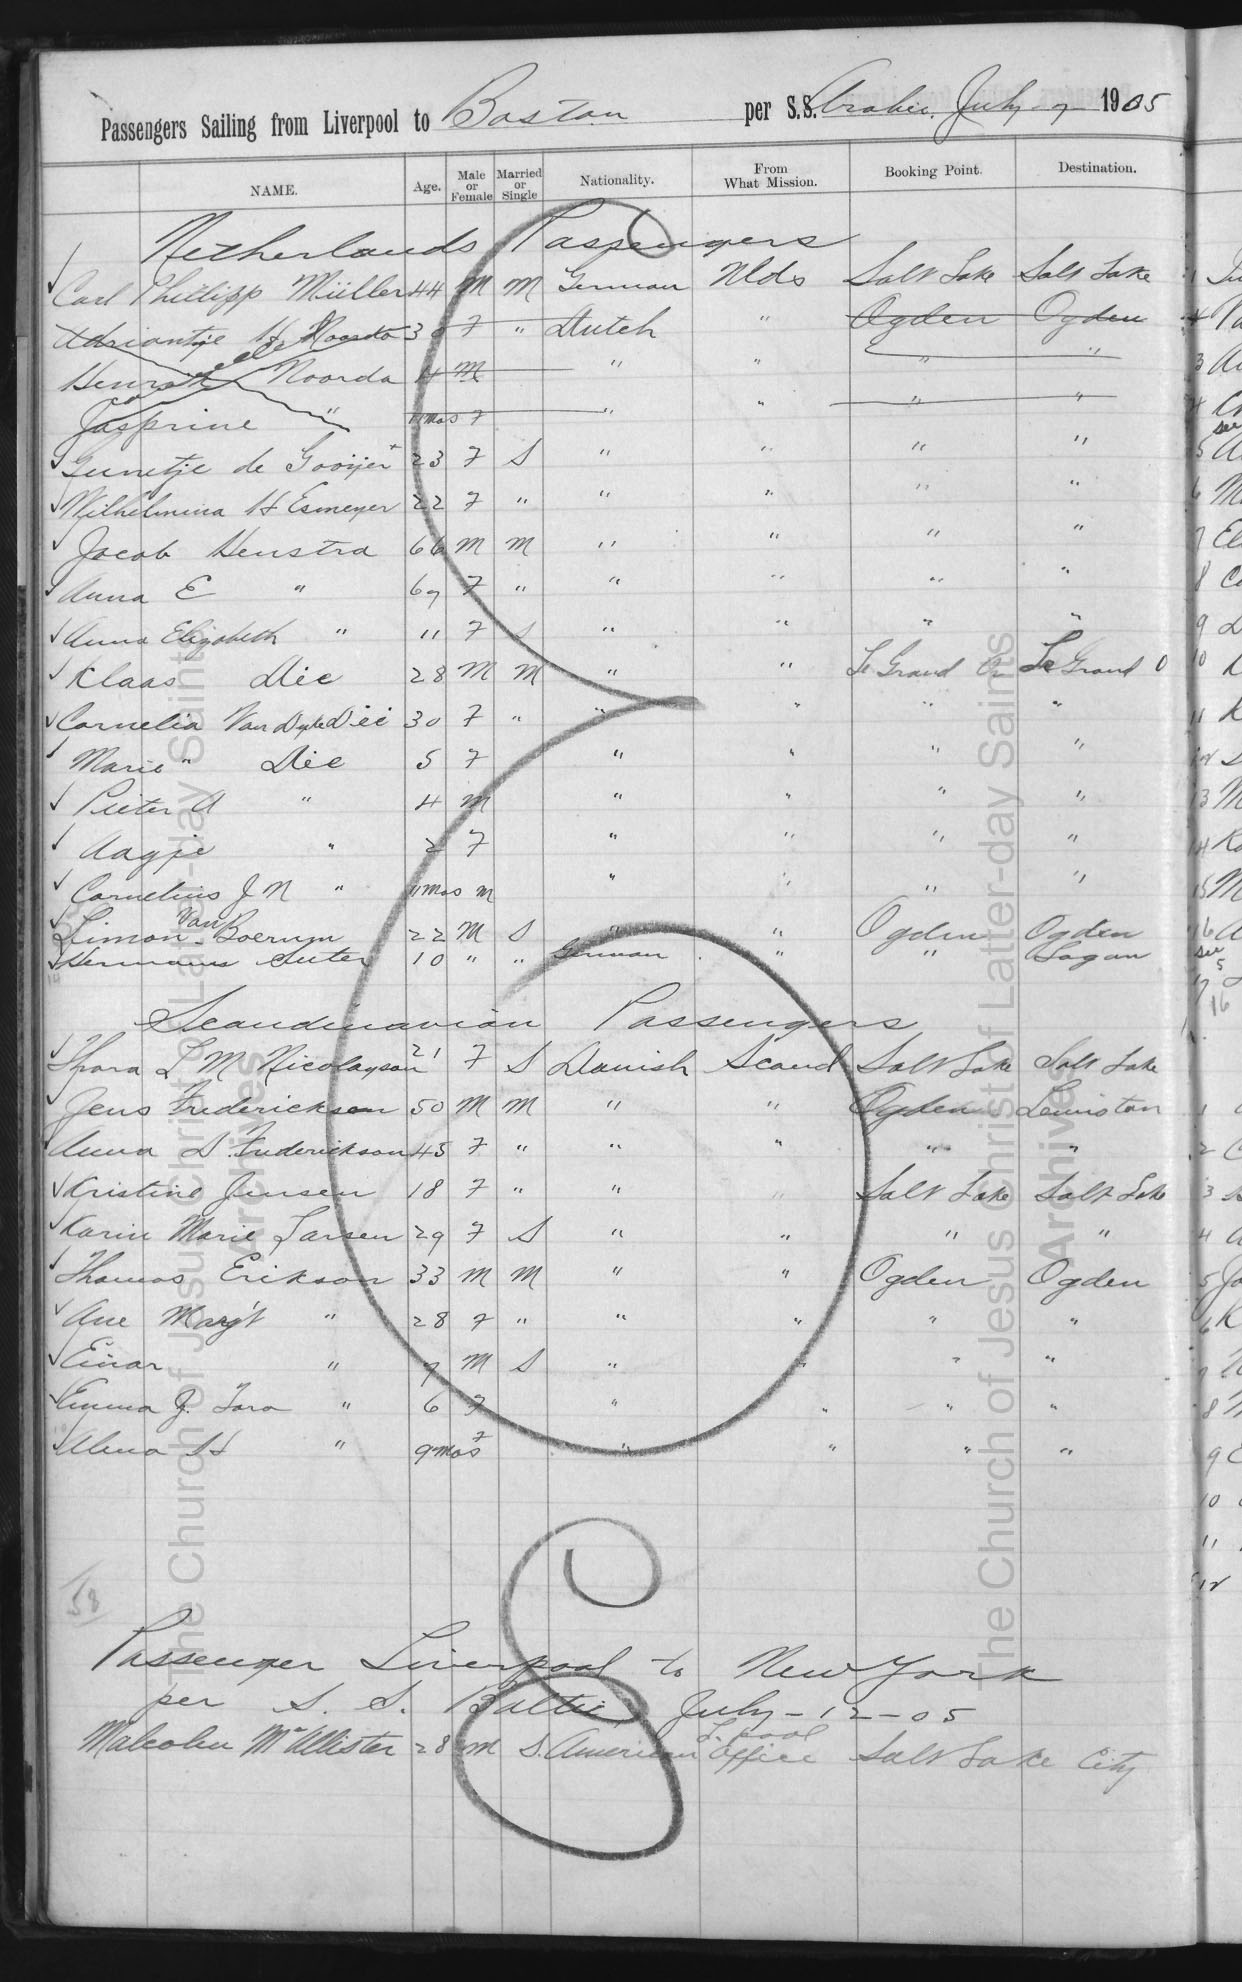 Passengers Sailing from Liverpool to Boston per S.S. Arabic July 7 1905
NAME. Age. Male or Female Married or Single Nationality. From What Mission. Booking Point. Destination.
Netherlands Passengers
Carl Phillipp Müller 44 M M German Nlds Salt Lake Salt Lake
Adriantje H de Noorda 3 F " Dutch " Ogden Ogden
Henri Noorda 4 M " " " "
Jasprine " 11 mos F " " " "
Gunetje de Gooijer 23 F S " " " "
Wilhelmina H Esmeyer 22 F " " " " "
Jacob Heustra 66 M M " " " "
Anna E " 67 F " " " " "
Anna Elizabeth " 11 F S " " " "
Klaas Die 28 M M " " Le Grand Or Le Grand O
Cornelia Van Dyke Die 30 F " " " " "
Marie " Die 5 F " " " "
Pieter A " 4 M " " " "
Aagje " 2 F " " " "
Cornelius J N " 11 mos M " " " "
Simon Van Boerum 22 M S " " Ogden Ogden
Hermann Suter 10 " " German " " Logan
Scandinavian Passengers
Thora L M Nicolayson 21 F S Danish Scand Salt Lake Salt Lake
Jens Frederickson 50 M M " " Ogden Lewiston
Anna S. Frederickson 45 F " " " " "
Kristine Jensen 18 F " " " Salt Lake Salt Lake
Karin Marie Larsen 29 F S " " " "
Thomas Erikson 33 M M " " Ogden Ogden
Ane Marg't " 28 F " " " " "
Einar " 7 M S " " " "
Emma J. Tora " 6 F " " " "
Alma H " 9 mos F " " " "
58
Passenger Liverpool to New York
per S. S. Baltic July-12-05
Malcolm McAllister 28 M S. American L.pool Office Salt Lake City
The Church of Jesus Christ of Latter-day Saints
Archives
The Church of Jesus Christ of Latter-day Saints
Archives